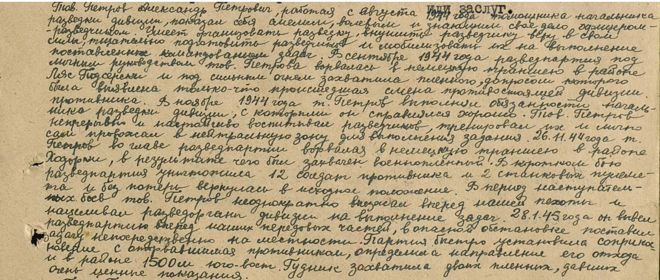 или заслуг.
Тов. Петров Александр Петрович работая с августа 1944 года помощника начальника
разведки дивизии, показал себя смелым, волевым и знающим своё дело, офицером-
разведчиком. Умеет организовать разведку, внушить разведчику веру в свои
силы, тщательно подготовить разведчиков и мобилизовать их на выполнение
поставленных командованием задач. В сентябре 1944 года разведпартия под
личным руководством тов. Петрова ворвалась в немецкую траншею в районе
Ляс и под сильным огнем захватила пленного, допросом которого
была выявлена только-что происшедшая смена противостоящей дивизии
противника. В ноябре 1944 года т. Петров выполнял обязанности началь-
ника разведки дивизии, с которыми он справлялся хорошо. Тов. Петров
непрерывно и настойчиво воспитывал разведчиков, тренировал их и лично
сам провожал в нейтральную зону для выполнения задания. 26.11.44 года т.
Петров во главе разведпартии ворвался в немецкую траншею в районе
Ходорки, в результате чего был захвачен военнопленный. В коротком бою
разведпартия уничтожила 12 солдат противника и 2 станковых пулеме-
та и без потерь вернулась в исходное положение. В период наступатель-
ных боев тов. Петров неоднократно выезжал вперед нашей пехоты и
нацеливал разведорганы дивизии на выполнение задач. 28.1.45 года он вывел
разведпартию вперед наших передовых частей, в опасной обстановке поставил
задачу непосредственно на местности. Партия быстро установила соприкос-
новение с противником, определила направление его отхода
и в районе 1500 м. юго-вост. Гудник захватила двоих пленных, давших
очень ценные показания.